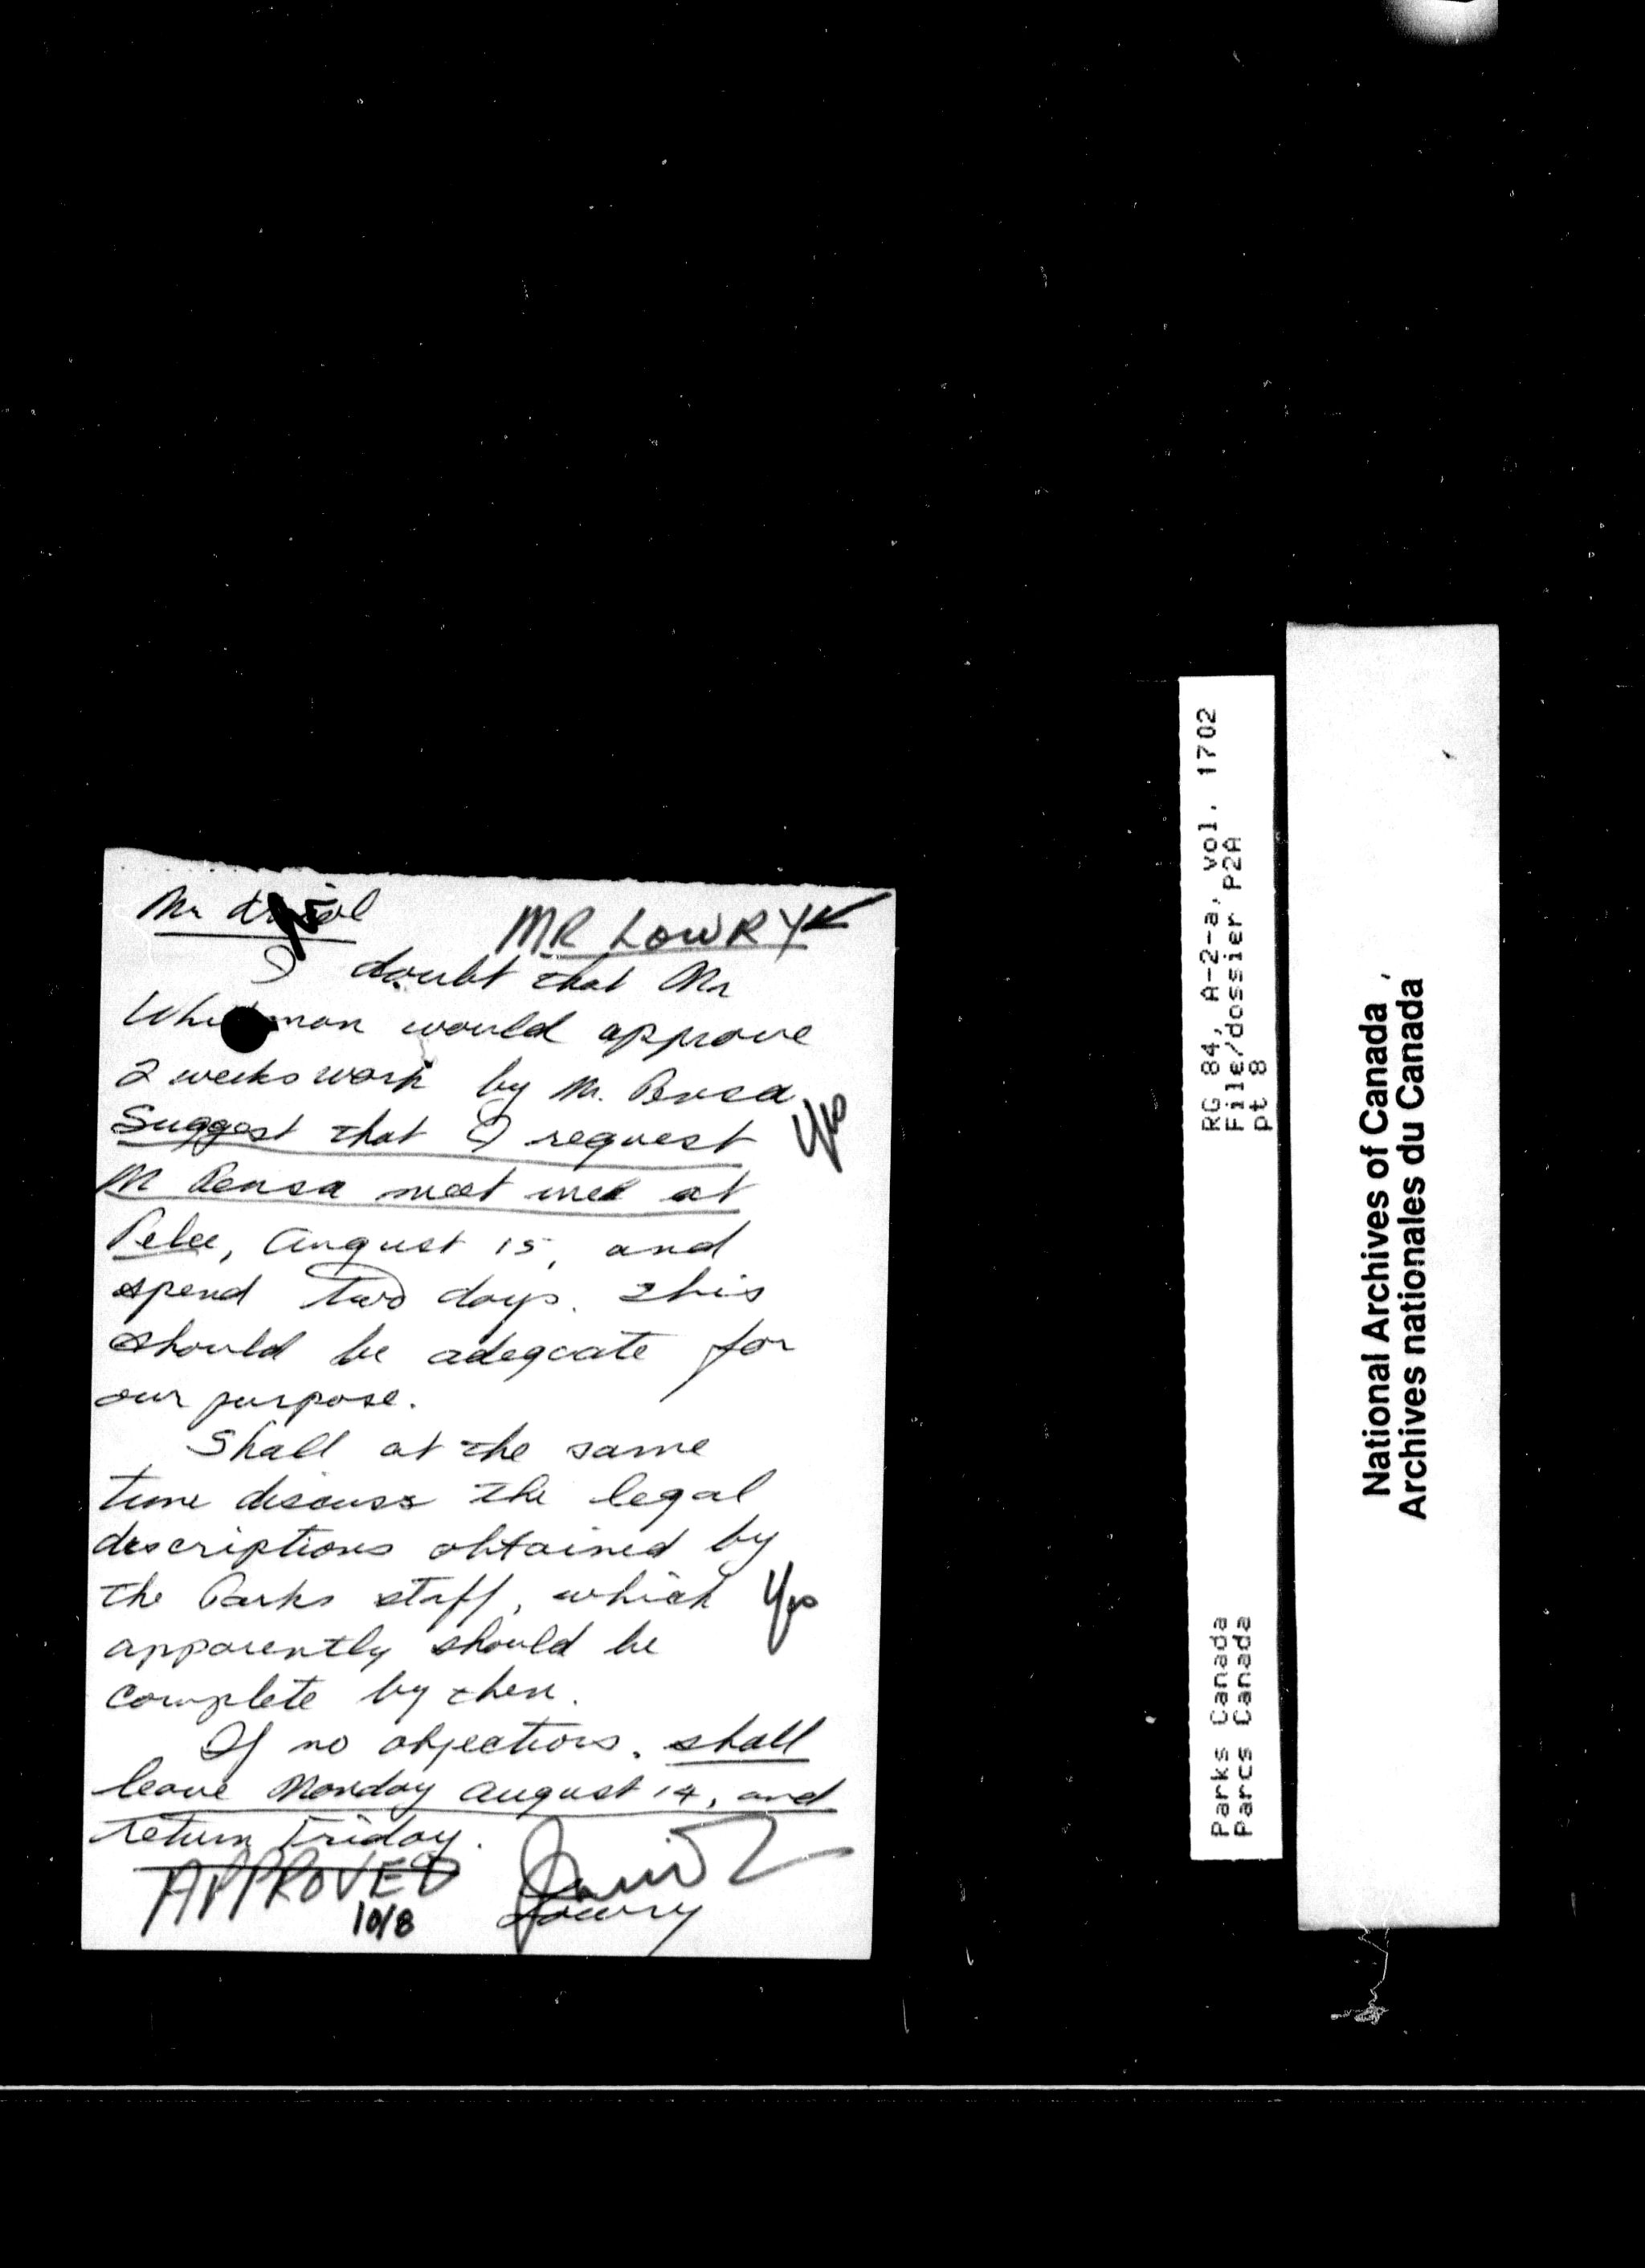 Mr
MR LOWRY
I doubt that Mr
would approve
2 weeks work by Mr. Pensa.
Suggest that I request
Yes
M Pensa meet me at
Pelee, August 15, and
spend two days. This
should be adequate for
our purpose.
Shall at the same
time discuss the legal
descriptions obtained by
the Parks staff, which
Yes
apparently should be
complete by then.
If no objections. shall
leave Monday August 14, and
return Friday.
APPROVED
10/8
Lowry
RG 84, A-2-a, vol. 1702
File/dossier P2A
pt 8
Parks Canada
Parcs Canada
National Archives of Canada
Archives nationales du Canada